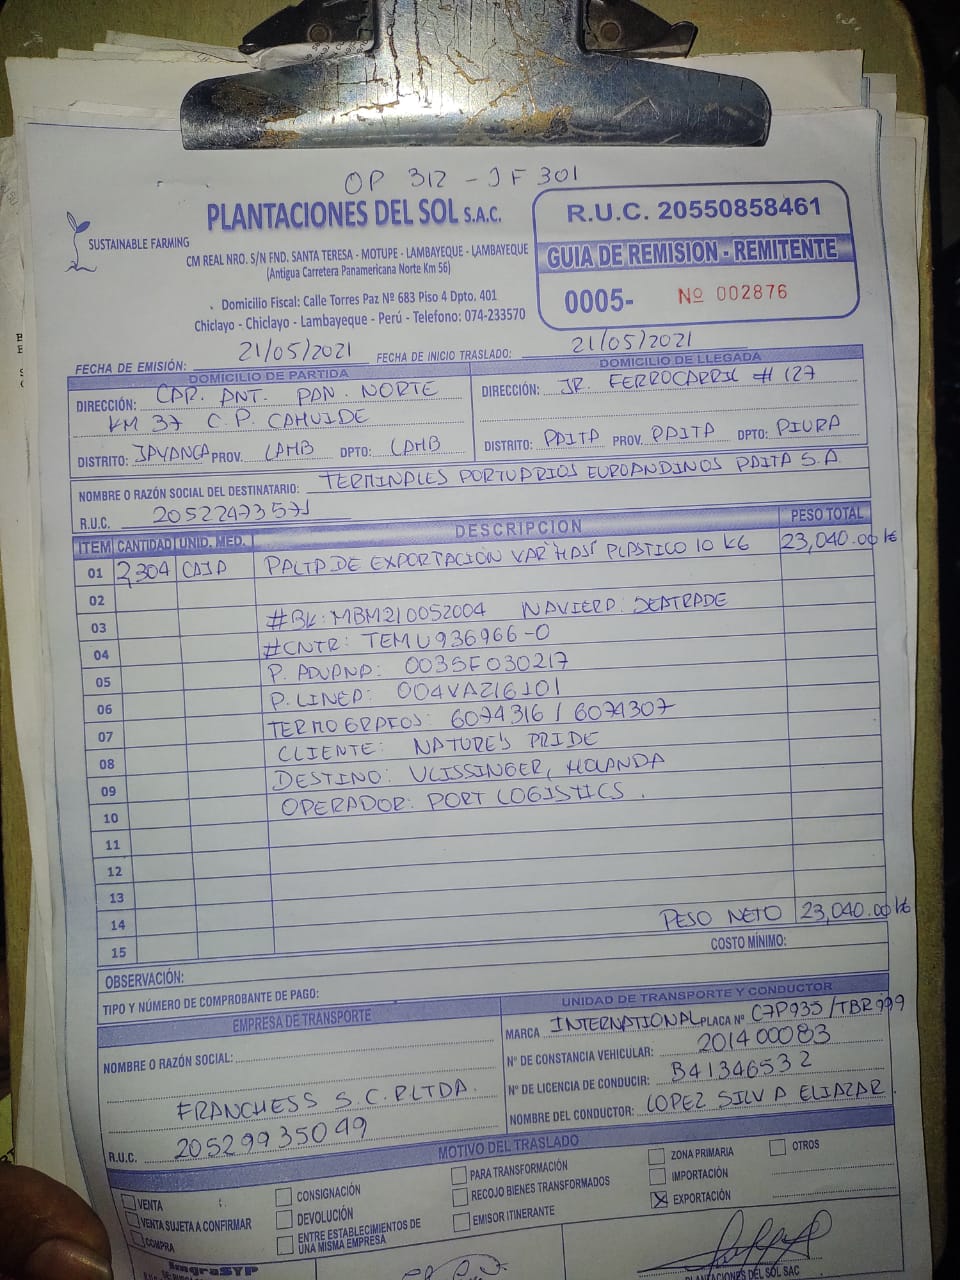 OP 312 - JF 301
SUSTAINABLE FARMING
PLANTACIONES DEL SOL S.A.C.
CM REAL NRO. S/N FND. SANTA TERESA - MOTUPE - LAMBAYEQUE - LAMBAYEQUE
(Antigua Carretera Panamericana Norte Km 56)
Domicilio Fiscal: Calle Torres Paz Nº 683 Piso 4 Dpto. 401
Chiclayo - Chiclayo - Lambayeque - Perú - Telefono: 074-233570
R.U.C. 20550858461
GUIA DE REMISION - REMITENTE
0005- Nº 002876
FECHA DE EMISIÓN: 21/05/2021 FECHA DE INICIO TRASLADO: 21/05/2021
DOMICILIO DE PARTIDA
DIRECCIÓN: CAR. ANT. PAN. NORTE
KM 37 C.P. CAHUIDE
DISTRITO: JAYANCA PROV. LAMB DPTO: LAMB
DOMICILIO DE LLEGADA
DIRECCIÓN: JR. FERROCARRIL # 127
DISTRITO: PAITA PROV. PAITA DPTO: PIURA
NOMBRE O RAZÓN SOCIAL DEL DESTINATARIO: TERMINALES PORTUARIOS EUROANDINOS PAITA S.A.
R.U.C. 20522473571
ITEM CANTIDAD UNID. MED. DESCRIPCION PESO TOTAL
01 2,304 CAJA PALTA DE EXPORTACIÓN VAR "HASS" PLASTICO 10 KG 23,040.00 KG
02
03 #BK: MBM210052004 NAVIERA: SEATRADE
04 #CNTR: TEMU936966-0
05 P. ADUANA: 0035F030217
06 P. LINEA: 004VAZ16101
07 TERMOGRAFOS: 6074316 / 6074307
08 CLIENTE: NATURE'S PRIDE
09 DESTINO: VLISSINGER, HOLANDA
10 OPERADOR: PORT LOGISTICS.
11
12
13
14 PESO NETO 23,040.00 KG
15
COSTO MÍNIMO:
OBSERVACIÓN:
TIPO Y NÚMERO DE COMPROBANTE DE PAGO:
EMPRESA DE TRANSPORTE
NOMBRE O RAZÓN SOCIAL:
FRANCHESS S.C.R.LTDA.
R.U.C. 20529935049
UNIDAD DE TRANSPORTE Y CONDUCTOR
MARCA INTERNATIONAL PLACA Nº C7P935/TBR999
Nº DE CONSTANCIA VEHICULAR: 201400083
Nº DE LICENCIA DE CONDUCIR: B41346532
NOMBRE DEL CONDUCTOR: LOPEZ SILVA ELIAZAR
MOTIVO DEL TRASLADO
VENTA
VENTA SUJETA A CONFIRMAR
COMPRA
CONSIGNACIÓN
DEVOLUCIÓN
ENTRE ESTABLECIMIENTOS DE
UNA MISMA EMPRESA
PARA TRANSFORMACIÓN
RECOJO BIENES TRANSFORMADOS
EMISOR ITINERANTE
ZONA PRIMARIA
IMPORTACIÓN
EXPORTACIÓN
OTROS
ImgraSYP
PLANTACIONES DEL SOL SAC